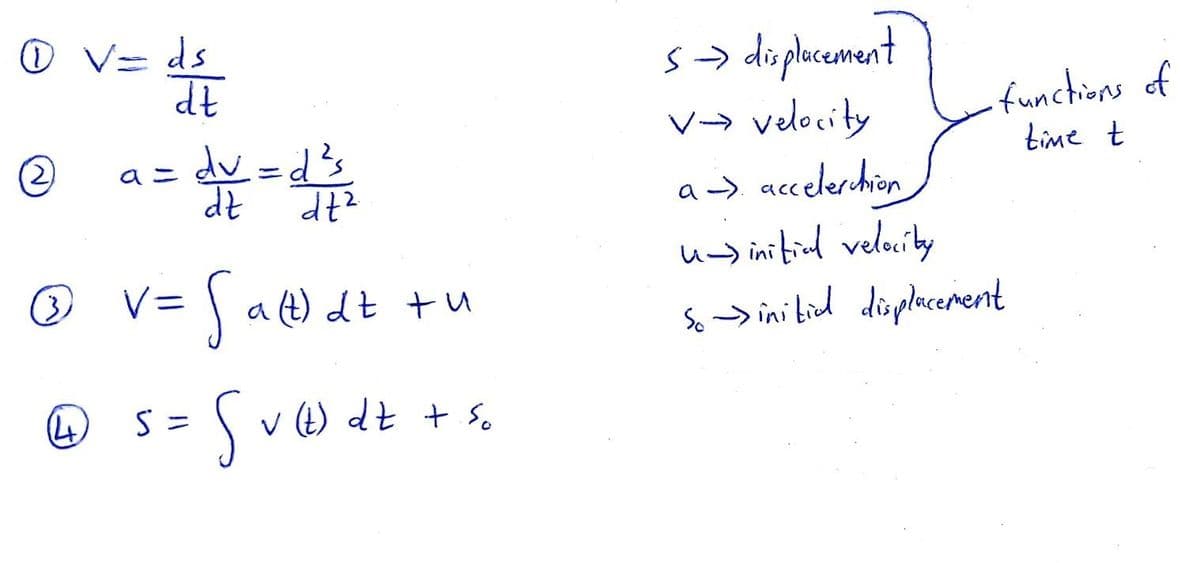 ① v = ds/dt
② a = dv/dt = d²s/dt²
③ v = ∫ a(t) dt + u
④ s = ∫ v(t) dt + s₀
s → displacement
v → velocity
a → acceleration
functions of
time t
u → initial velocity
s₀ → initial displacement